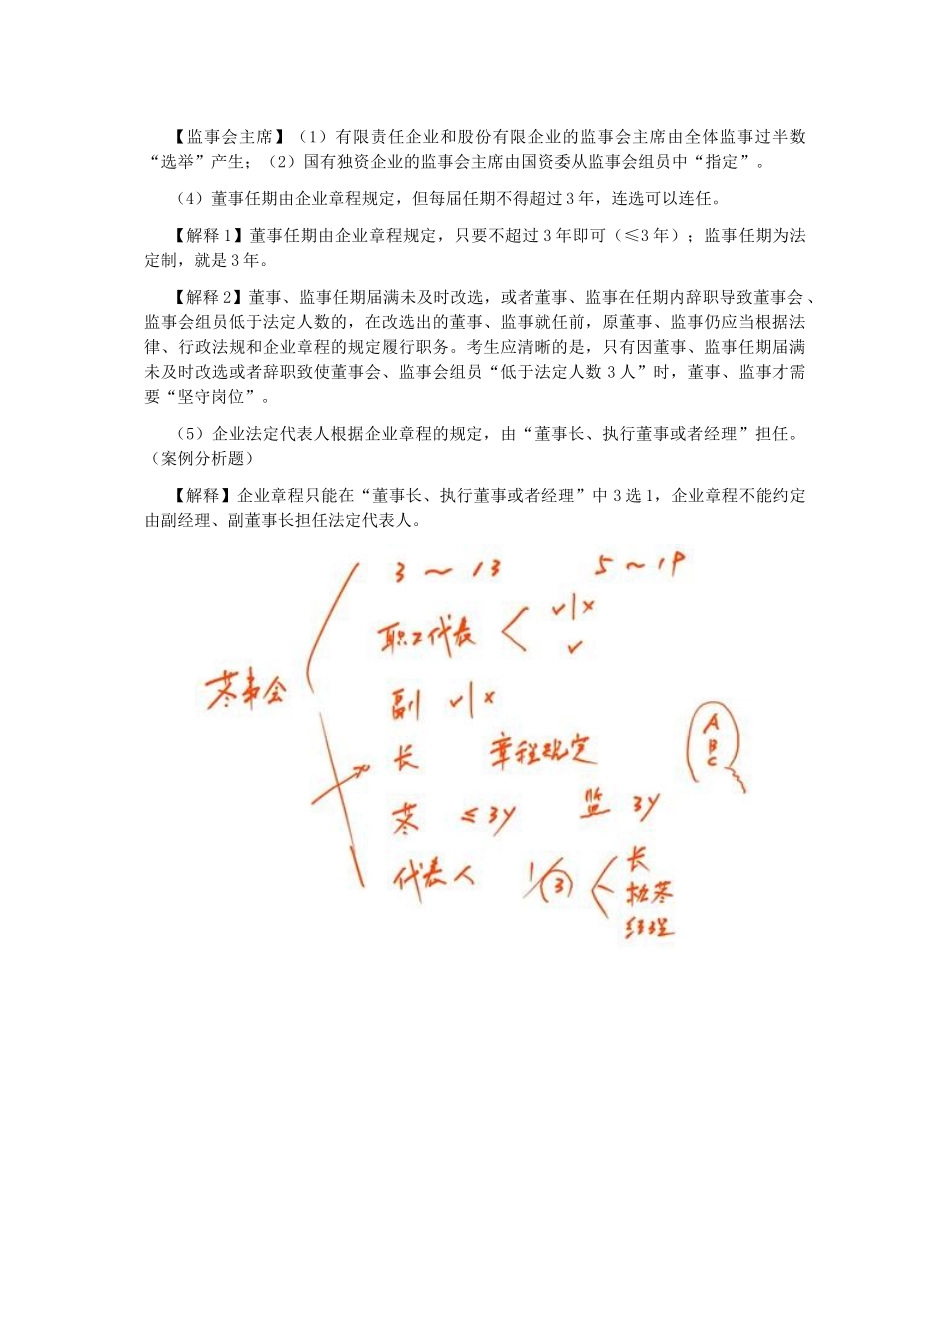 【监事会主席】（1）有限责任企业和股份有限企业的监事会主席由全体监事过半数
“选举”产生；（2）国有独资企业的监事会主席由国资委从监事会组员中“指定”。
（4）董事任期由企业章程规定，但每届任期不得超过 3 年，连选可以连任。
【解释 1】董事任期由企业章程规定，只要不超过 3 年即可（≤3 年）；监事任期为法
定制，就是 3 年。
【解释 2】董事、监事任期届满未及时改选，或者董事、监事在任期内辞职导致董事会、
监事会组员低于法定人数的，在改选出的董事、监事就任前，原董事、监事仍应当根据法
律、行政法规和企业章程的规定履行职务。考生应清晰的是，只有因董事、监事任期届满
未及时改选或者辞职致使董事会、监事会组员“低于法定人数 3 人”时，董事、监事才需
要“坚守岗位”。
（5）企业法定代表人根据企业章程的规定，由“董事长、执行董事或者经理”担任。
（案例分析题）
【解释】企业章程只能在“董事长、执行董事或者经理”中 3 选 1，企业章程不能约定
由副经理、副董事长担任法定代表人。
3～13 5～19
职工代表 ✓|×
✓
董事会
副 ✓|×
长 章程规定
A
B
C
董 ≤3y 监 3y
代表人 1/(3) 长
执董
经理